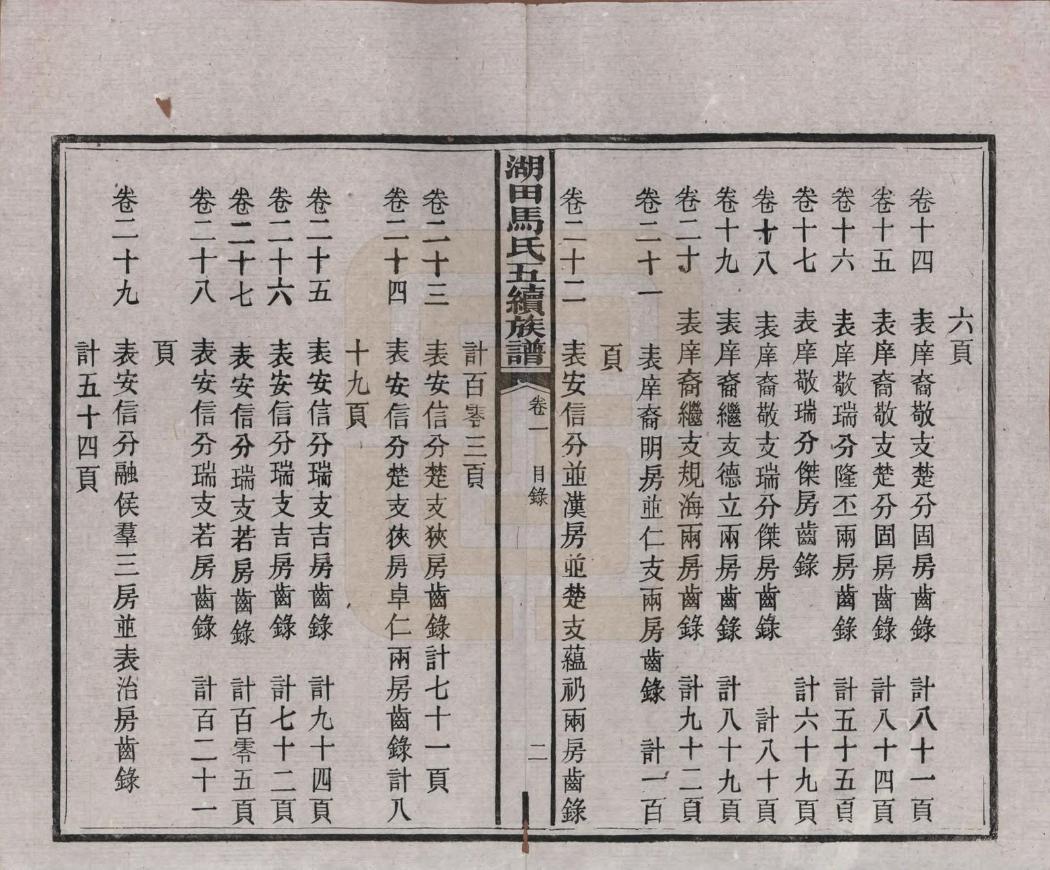 六頁
卷十四　表庠裔敬支楚分固房齒錄　計八十一頁
卷十五　表庠裔敬支楚分固房齒錄　計八十四頁
卷十六　表庠敬瑞分隆丕兩房齒錄　計五十五頁
卷十七　表庠敬瑞分傑房齒錄　計六十九頁
卷十八　表庠裔敬支瑞分傑房齒錄　計八十頁
卷十九　表庠裔繼支德立兩房齒錄　計八十九頁
卷二十　表庠裔繼支規海兩房齒錄　計九十二頁
卷二十一　表庠裔明房並仁支兩房齒錄　計一百
頁
卷二十二　表安信分並漢房並楚支蘊礽兩房齒錄
湖田馬氏五續族譜　卷一　目錄　二
計百零三頁
卷二十三　表安信分楚支狹房齒錄計七十一頁
卷二十四　表安信分楚支狹房卓仁兩房齒錄計八
十九頁
卷二十五　表安信分瑞支吉房齒錄　計九十四頁
卷二十六　表安信分瑞支吉房齒錄　計七十二頁
卷二十七　表安信分瑞支若房齒錄　計百零五頁
卷二十八　表安信分瑞支若房齒錄　計百二十一
頁
卷二十九　表安信分融侯羣三房並表治房齒錄
計五十四頁